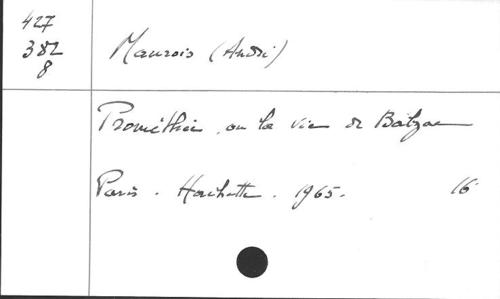 427
382
8
Maurois (André)
Prométhée, ou la vie de Balzac
Paris. Hachette. 1965.
16°